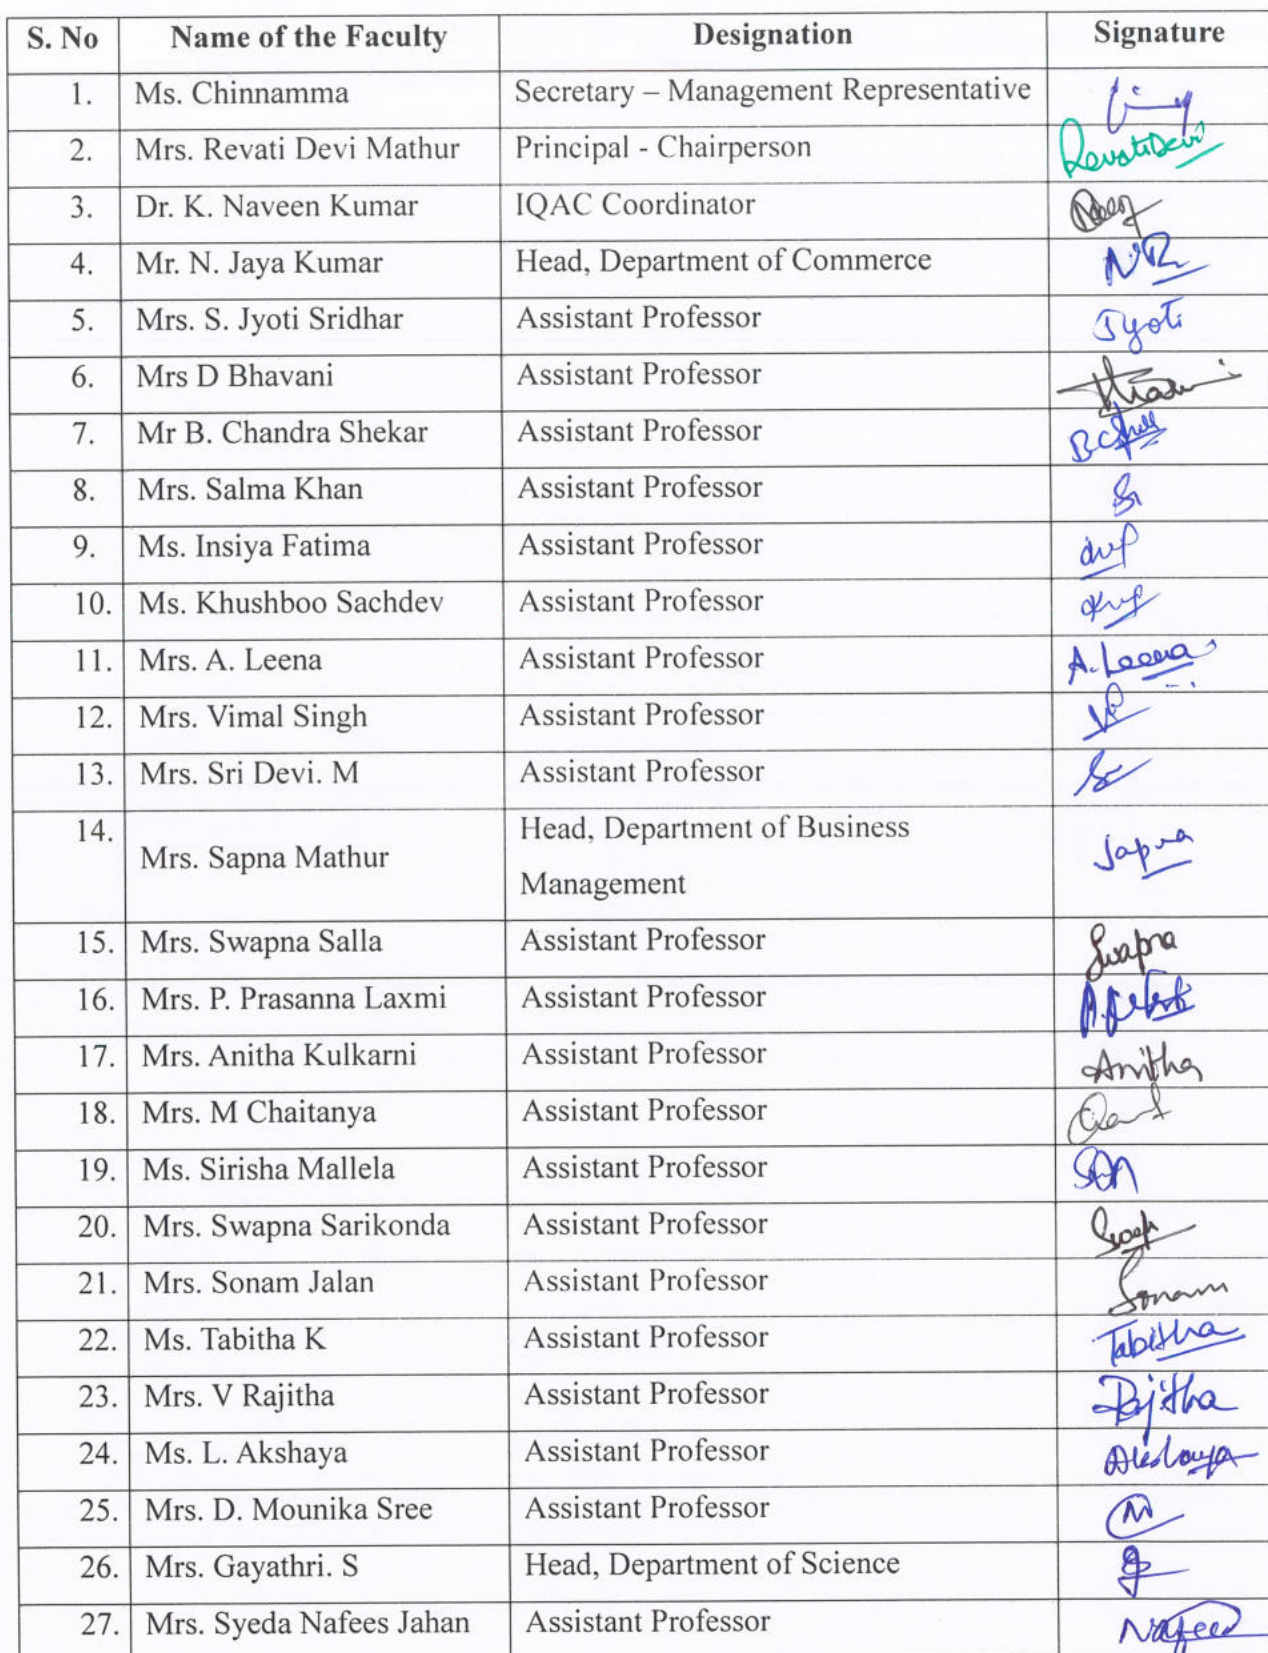 S. No Name of the Faculty Designation Signature
1. Ms. Chinnamma Secretary – Management Representative
2. Mrs. Revati Devi Mathur Principal - Chairperson RevatiDevi
3. Dr. K. Naveen Kumar IQAC Coordinator
4. Mr. N. Jaya Kumar Head, Department of Commerce
5. Mrs. S. Jyoti Sridhar Assistant Professor Jyoti
6. Mrs D Bhavani Assistant Professor
7. Mr B. Chandra Shekar Assistant Professor
8. Mrs. Salma Khan Assistant Professor
9. Ms. Insiya Fatima Assistant Professor
10. Ms. Khushboo Sachdev Assistant Professor
11. Mrs. A. Leena Assistant Professor A. Leena
12. Mrs. Vimal Singh Assistant Professor
13. Mrs. Sri Devi. M Assistant Professor
14. Mrs. Sapna Mathur Head, Department of Business
Management Sapna
15. Mrs. Swapna Salla Assistant Professor Swapna
16. Mrs. P. Prasanna Laxmi Assistant Professor
17. Mrs. Anitha Kulkarni Assistant Professor Anitha
18. Mrs. M Chaitanya Assistant Professor
19. Ms. Sirisha Mallela Assistant Professor
20. Mrs. Swapna Sarikonda Assistant Professor
21. Mrs. Sonam Jalan Assistant Professor Sonam
22. Ms. Tabitha K Assistant Professor Tabitha
23. Mrs. V Rajitha Assistant Professor Rajitha
24. Ms. L. Akshaya Assistant Professor Akshaya
25. Mrs. D. Mounika Sree Assistant Professor
26. Mrs. Gayathri. S Head, Department of Science
27. Mrs. Syeda Nafees Jahan Assistant Professor Nafees